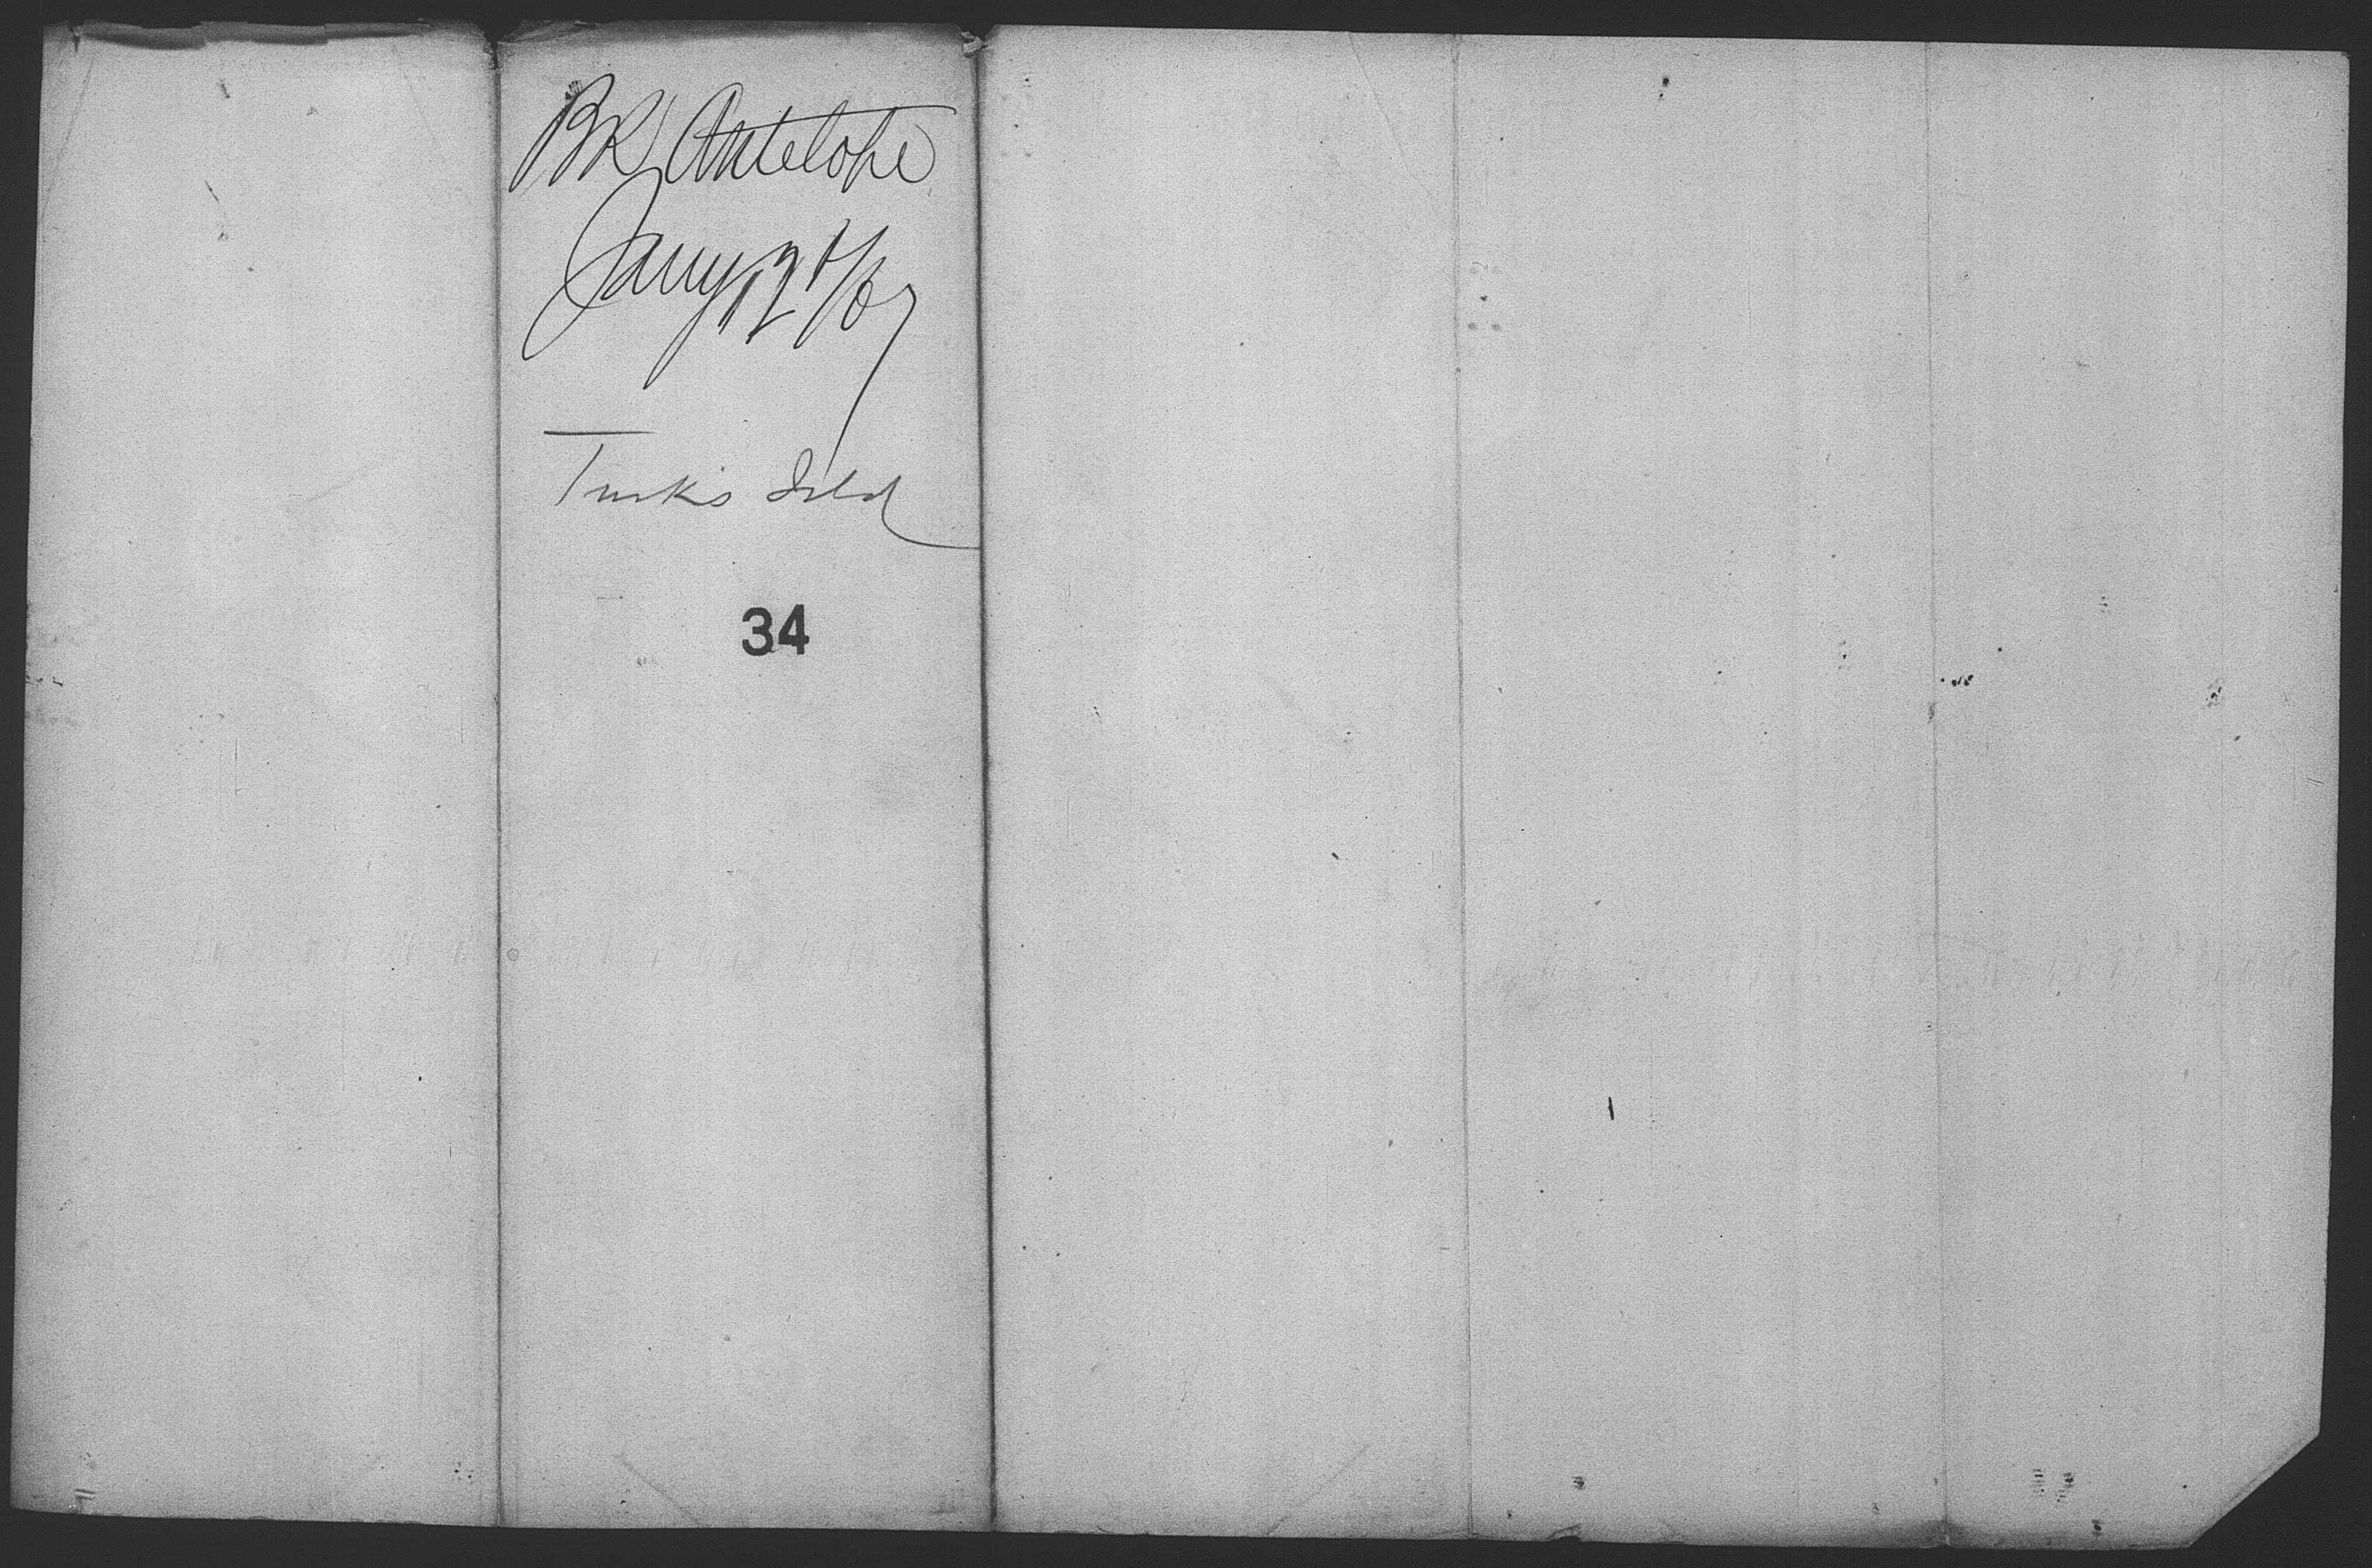 Bk Antelope
Jany 12th/67
Turk's Isld
34